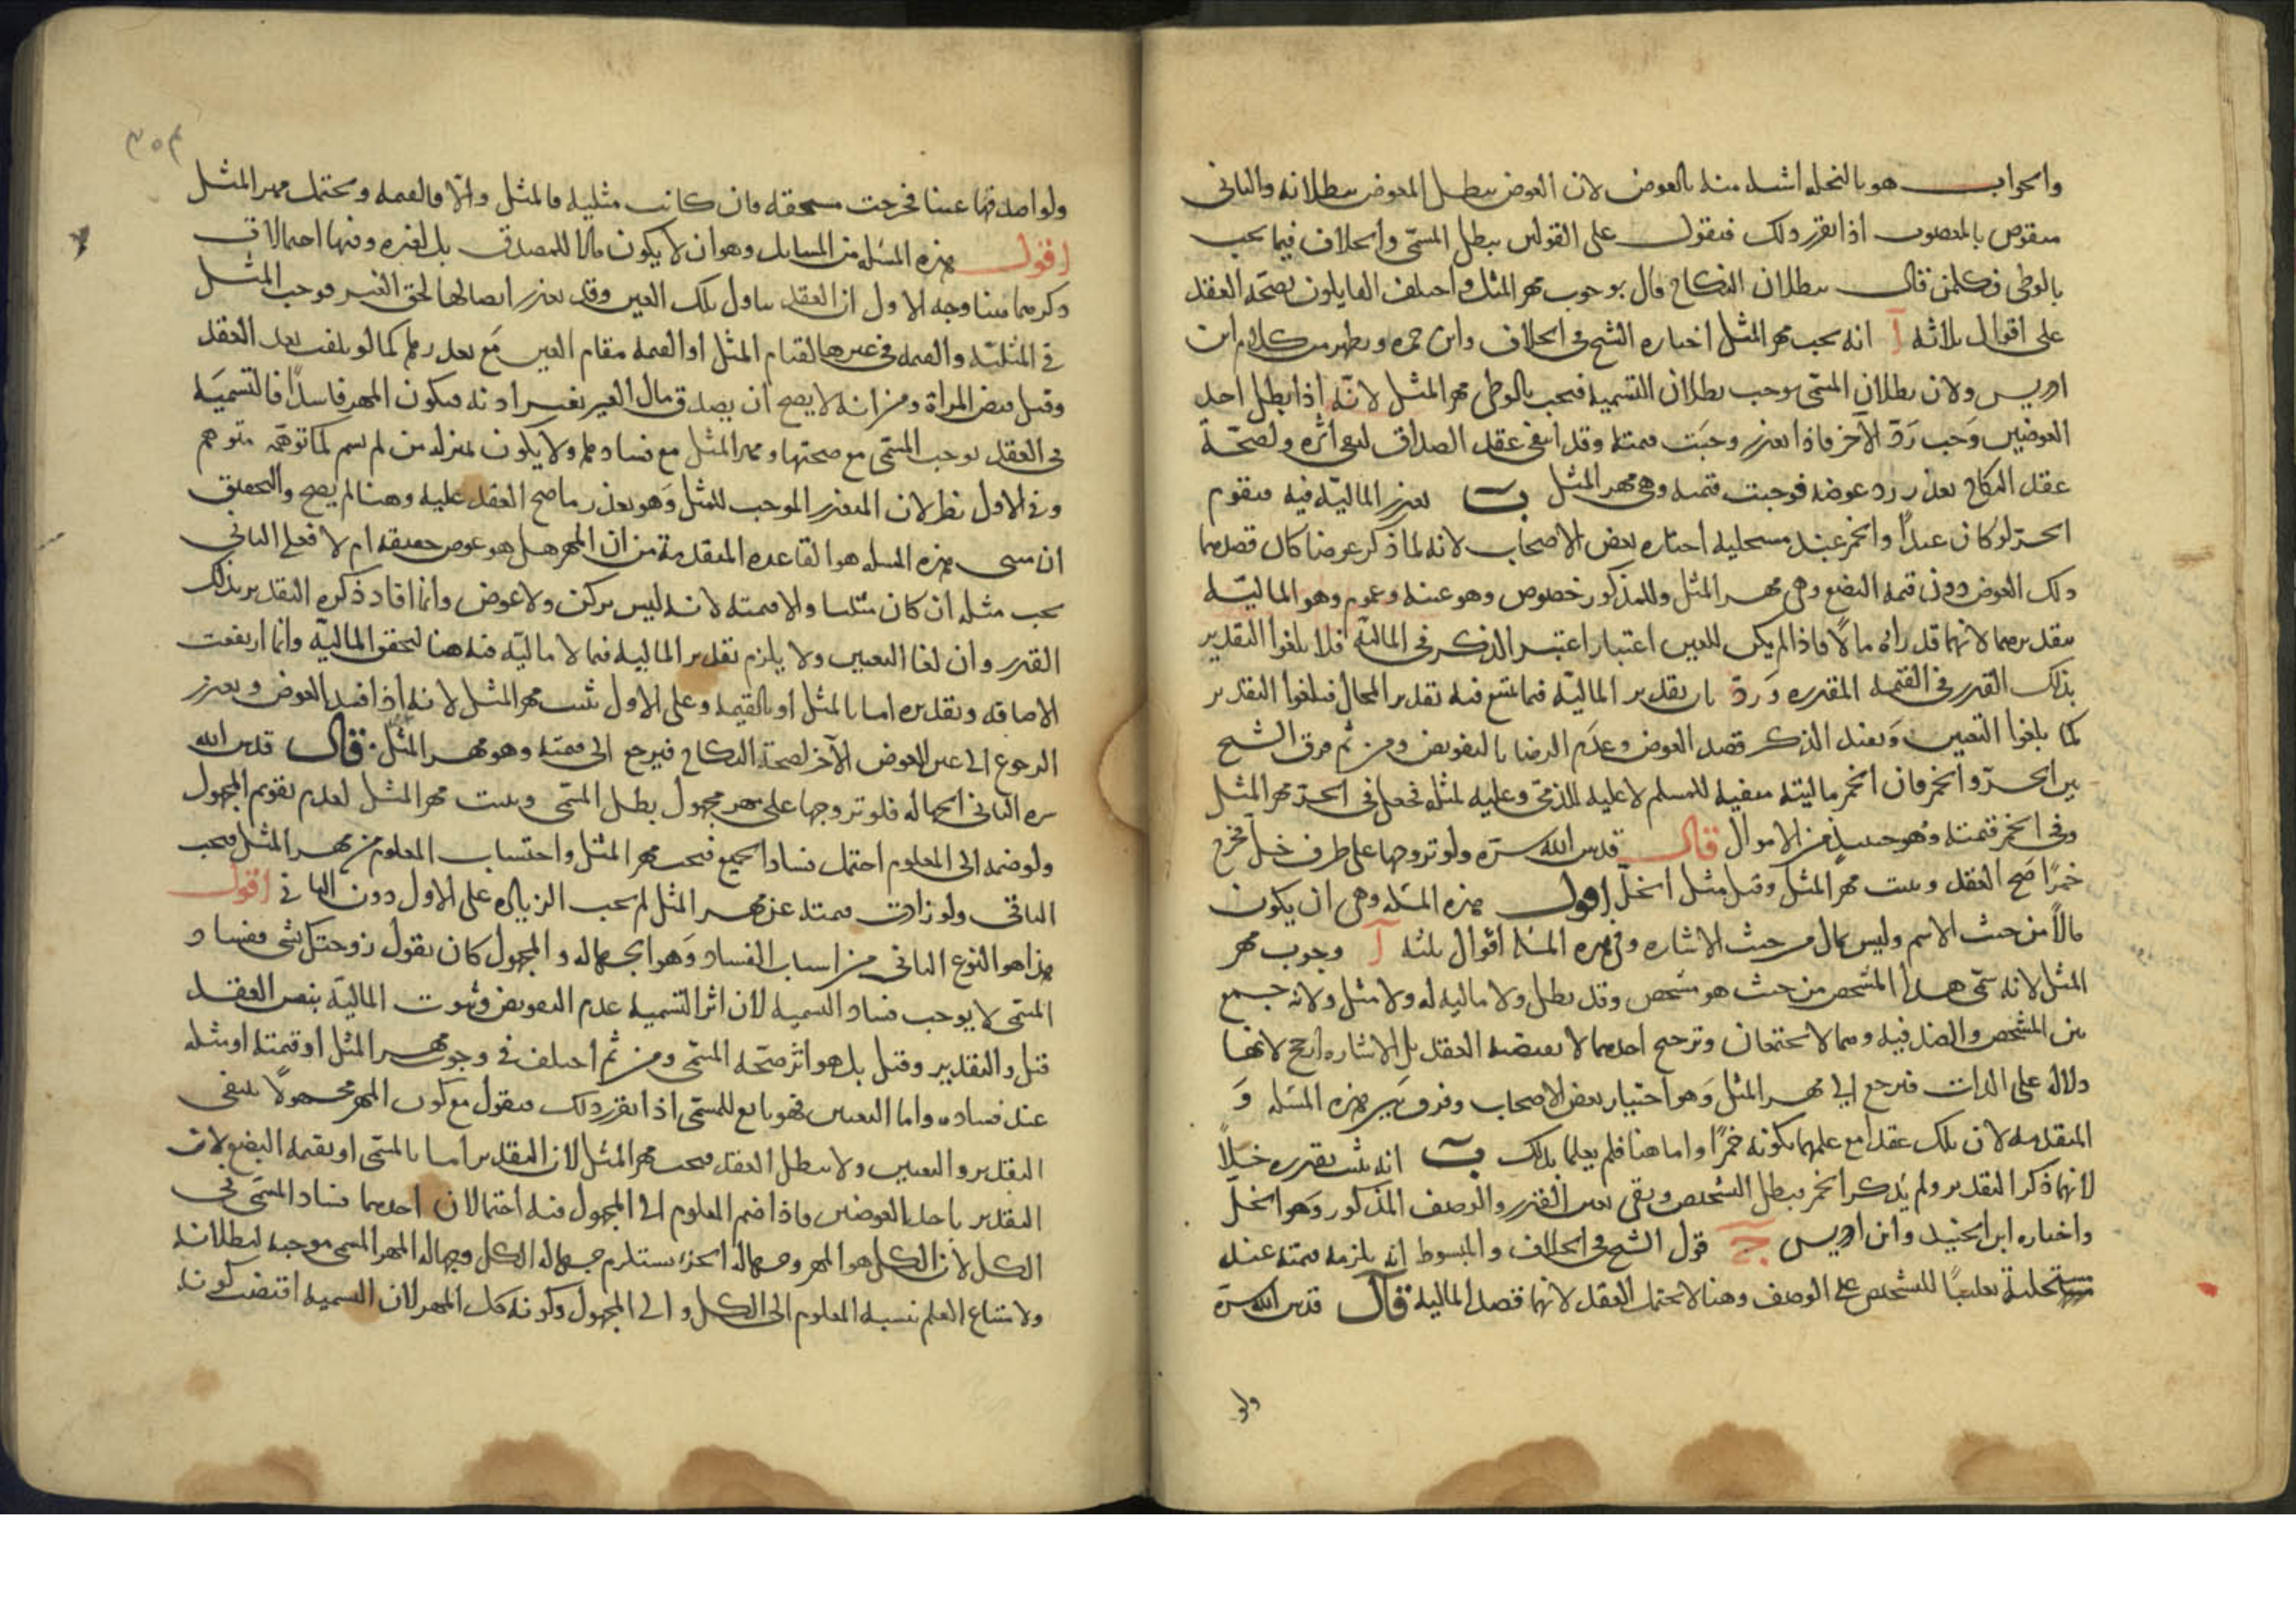 والجواب هو بالنحلة اشبه منه بالعوض لان العوض يبطل المعوض ببطلانه والثاني
منقوض بالمغصوب اذا تقرر ذلك فنقول على القولين يبطل المسمّى والخلاف فيما يجب
بالوطي فكلمن قال ببطلان النكاح قال بوجوب مهر المثل واختلف القايلون بصحّة العقد
على اقوال ثلاثة آ انه يجب مهر المثل اختاره الشيخ في الخلاف وابن حمزه ويظهر من كلام ابن
ادريس ولان بطلان المسمّى يوجب بطلان التسمية فيجب بالوطي مهر المثل لانّه اذا بطل احد
العوضين وَجب رَدّ الآخر فاذا تعذر وجبَت قيمته وقد انتفى عقد الصداق لنفي اثره ولصحّة
عقد النكاح تعذر ردّ عوضه فوجبت قيمته وهي مهر المثل ب تعزر الماليّة فيه فيقوم
الحرّ لو كان عبدًا والخمر عند مستحليه اختاره بعض الاصحاب لانه لما ذكر عوضا كان قصدهما
ذلك العوض دون قيمة البضع وهي مهر المثل وللمذكور خصوص وهو عينه وعموم وهو الماليّة
بتقديرهما لانهما قدراه مالًا فاذا لم يكن للعين اعتبار اعتبر الذكر في الماليّة فلا يلغوا التقدير
بذلك القدر في القيمة المقدره وَردّ بان تقدير الماليّة فيما يمتنع فيه تقدير المحال فيلغوا التقدير
كما يلغوا التعيين وَيفيد الذكر قصد العوض وعدَم الرضا بالتفويض ومن ثم فرق الشيخ
بين الحرّ والخمر فان الخمر ماليته منفيه للمسلم لا عليه للذمّي وعليه لمثله فجعل في الحرّ مهر المثل
وفي الخمر قيمته وهو حينيذٍ من الاموال قال قدس الله سرّه ولو تزوجها على ظرف خلّ فخرج
خمرًا صَح العقد ويثبت مهر المثل وقيل مثل الخلّ اقول هذه المسئلة وهي ان يكون
مالاً من حيث الاسم وليس بمال من حيث الاشارة وفي هذه المسئلة اقوال ثلثه آ وجوب مهر
المثل لانه سمّى هذا المشخص من حيث هو مشخص وقد بطل ولا مالية له ولا مثل ولانه جمع
بين المشخص والضد فيه وهما لا يجتمعان وترجيح احدهما لا يقتضيه العقد بل الاشارة ارجح لانها
دلالة على الذات فيرجع الى مهر المثل وَهو اختيار بعض الاصحاب وفرق بَين هذه المسئله وَ
المتقدمه لان تلك عقدا مع علمهما بكونه خمرًا واما هنا فلم يعلما بذلك ب انه يثبت بقدره خلًا
لانهما ذكرا التقدير ولم يَذكرا الخمر فبطل الشخص وبقي تعيين القدر والوصف المذكور وَهو الخلّ
واختاره ابن الجنيد وابن ادريس ج قول الشيخ في الخلاف والمبسوط انه يلزمه قيمته عند
مستحليه تغليبًا للشخص على الوصف وهنا لا يحتمل العقد لانهما قصدا المالية قال قدس الله سرّه
ولو
ولو اصدقها عينا فخرجت مستحقة فان كانت مثلية فالمثل والّا فالقيمه ويحتمل مهر المثل
اقول هذه المسئلة من المسايل وهو ان لا يكون مالا للمصدق بل لغيره وفيها احتمالان
ذكرهما هنا وجه الاول ان العقد تناول تلك العين وقد تعذر ايصالها لحق الغير فوجب المثل
في المثليّة والقيمه في غيرها لقيام المثل او القيمه مقام العين مَع تعذرها كما لو تلفت بعد العقد
وقبل قبض المراة ومن انه لا يصح ان يصدق مال الغير بغير اذنه فيكون المهر فاسدًا فالتسميَة
في العقد توجب المسمّى مع صحتها ومهر المثل مع فسادها ولا يكون بمنزلة من لم يسم كما توهّمه متوهم
وفي الاول نظر لان التعذر الموجب للمثل وَهو تعذر ما صح العقد عليه وهنا لم يصح والتحقيق
ان مبنى هذه المسئله هو القاعده المتقدمة من ان المهر هل هو عوض حقيقة ام لا فعلى الثاني
يجب مثله ان كان مثليا والا قيمته لانه ليس بركن ولا عوض وانما افاد ذكره التقدير بذلك
القدر وان لغا التعيين ولا يلزم تقدير المالية فيما لا ماليّة فيه هنا لتحقق الماليّة وانما ارتفعت
الاضافة وتقديره اما بالمثل او بالقيمة وعلى الاول يثبت مهر المثل لانه اذا فسد العوض وتعذر
الرجوع الى عين العوض الآخر لصحة النكاح فيرجع الى قيمته وهو مهر المثل قال قدس الله
سره الثاني الجهالة فلو تزوجها على مهر مجهول بطل المسمّى ويثبت مهر المثل لعدم تقويم المجهول
ولو ضمه الى المعلوم احتمل فساد الجميع فيجب مهر المثل واحتساب المعلوم من مهر المثل فيجب
الباقي ولو زادت قيمته عن مهر المثل لم يجب الزياده على الاول دون الثاني اقول
هذا هو النوع الثاني من اسباب الفساد وَهو الجهاله والمجهول كان يقول زوجتك بشي ففساد
المسمّى لا يوجب فساد التسمية لان اثر التسمية عدم التفويض وثبوت الماليّة بنفس العقد
قبل والتقدير وقيل بل هو اثر صحّة المسمّى ومن ثم اختلف في وجوب مهر المثل او قيمته او مثله
عند فساده واما التعيين فهو تابع للمسمّى اذا تقرر ذلك فنقول مع كون المهر مجهولًا ينتفي
التقدير والتعيين ولا يبطل العقد فيجب مهر المثل لان التقدير اما بالمسمّى او بقيمة البضع ولان
التقدير باحد العوضين فاذا ضم المعلوم الى المجهول فيه احتمالان احدهما فساد المسمّى في
الكل لان الكل هو المهر وجهالة الجزء يستلزم جهالة الكل وجهالة المهر المسمى موجبة لبطلانه
ولامتناع العلم بنسبة المعلوم الى الكل والى المجهول وكونه كل المهر لان التسمية اقتضت كونه